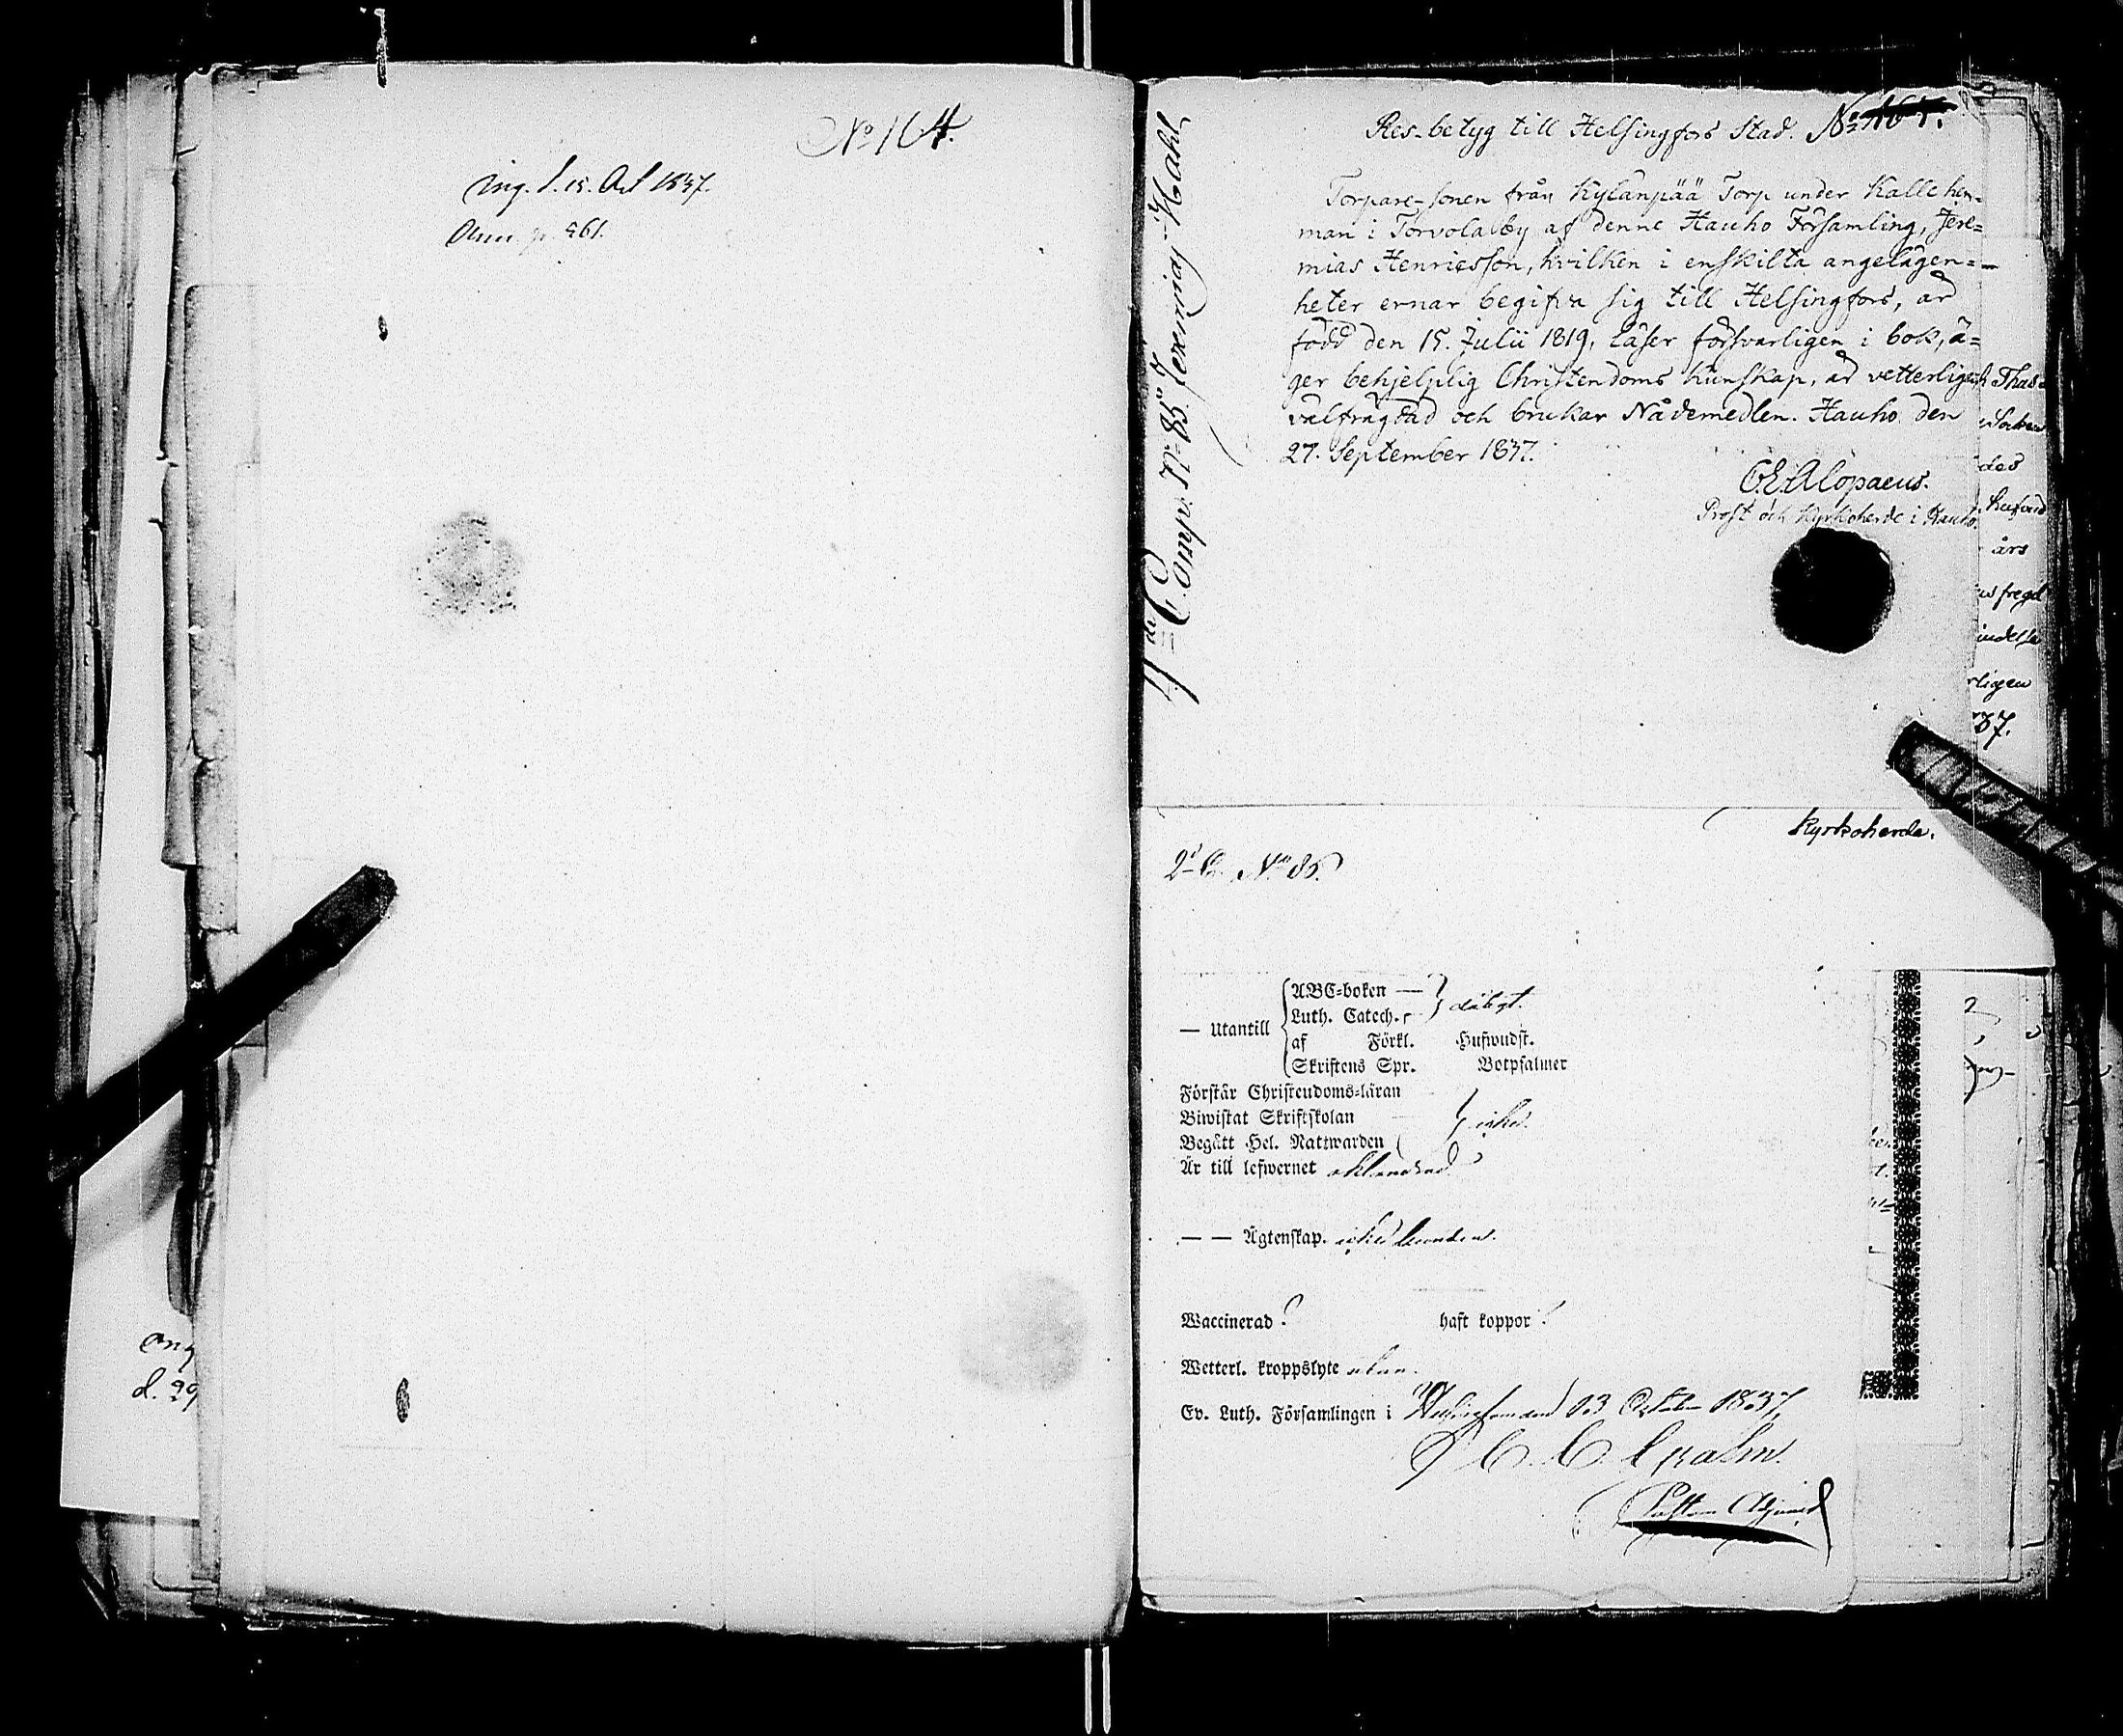 No 164.
ing. d. 15. Oct 1837.
p. 461.
Res-betyg till Helsingfors Stad. No 165.
Torpare-sonen från Kylänpää Torp under Kalle hem=
man i Torvolaby af denne Hauho Församling, Jere=
mias Henricsson, hvilken i enskilta angelägen=
heter ernar begifva sig till Helsingfors, är
född den 15. Julii 1819, läser försvarligen i bok, ä=
ger behjelplig Christendoms kunskap, är vetterligen
välfrägdad och brukar Nådemedlen. Hauho den
27. September 1837.
C.E. Alopaeus.
Prost och Kyrkoherde i Hauho
Comp. No 85. Jeremias Hahl
des
års
rligen
37.
Kyrkoherde.
2d C. No 85.
— Utantill
ABC-boken —
Luth. Catech.
af Förkl. Hufwudst.
Skriftens Spr. Botpsalmer
dåligt.
Förstår Christendoms-läran
Biwistat Skriftskolan
Begått Hel. Nattwarden
icke.
Är till lefwernet oklandrad
— — Ägtenskap. icke bunden.
Waccinerad? haft koppor?
Wetterl. kroppslyte utan.
Ev. Luth. Församlingen i Helsingfors den 13 October 1837,
Pastors Adjunct
ong
d. 29